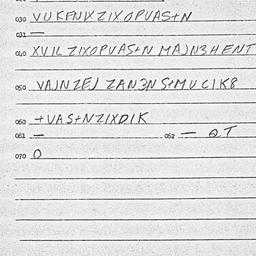 030 VUKFNIXZIXOPVAS+N
031 —
040 XVJL ZIXOPVAS+N MAJN3HENT
050 VAJNZEJ ZAN3NS+MUCIK8
060 +VAS+NZIXDIK
061 — 052 — QT
070 O